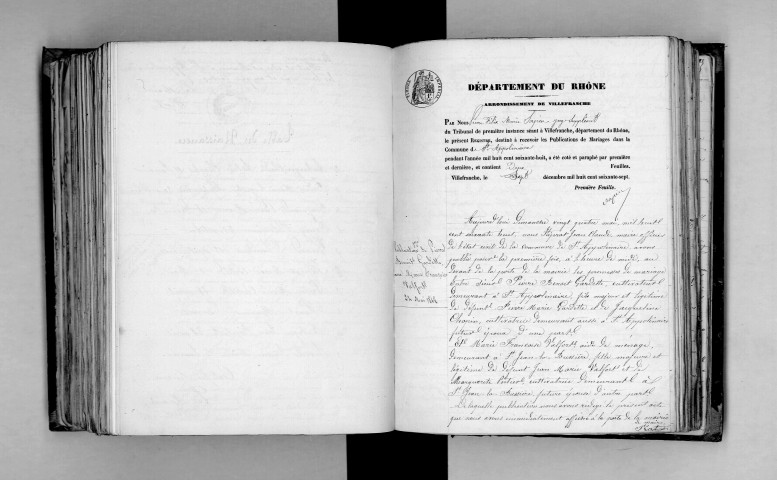 DÉPARTEMENT DU RHÔNE
ARRONDISSEMENT DE VILLEFRANCHE
PAR NOUS
du Tribunal de première instance séant à Villefranche, département du Rhône,
le présent REGISTRE, destiné à recevoir les Publications de Mariages dans la
Commune d St Appolinaire
pendant l'année mil huit cent soixante-huit, a été coté et paraphé par première
et dernière, et contient Deux Feuilles.
Villefranche, le Sept décembre mil huit cent soixante-sept.
Première Feuille.
Aujourd'hui Dimanche vingt quatre mai mil huit
cent soixante huit, nous Jean Claude maire officier
de l'état civil de la commune de St Appolinaire, avons
publié pour la première fois, à l'heure de midi, au
devant de la porte de la mairie les promesses de mariage
Entre Pierre Benoit Gardette, cultivateur
demeurant à St Appolinaire, fils majeur et légitime
de défunt Pierre Marie Gardette et de Jacqueline
cultivatrice demeurant aussi à St Appolinaire
futur époux d'une part
Et Marie Françoise Valfort aide de ménage,
demeurant à St Jean la Bussière, fille majeure et
légitime de défunt Jean Marie Valfort et de
Marguerite cultivatrice demeurant à
St Jean la Bussière future épouse d'autre part
De laquelle publication nous avons rédigé le présent acte
que nous avons immédiatement affiché à la porte de la mairie
Publication de Pierre
Benoit Gardette
avec Marie Françoise
Valfort
24 Mai 1868